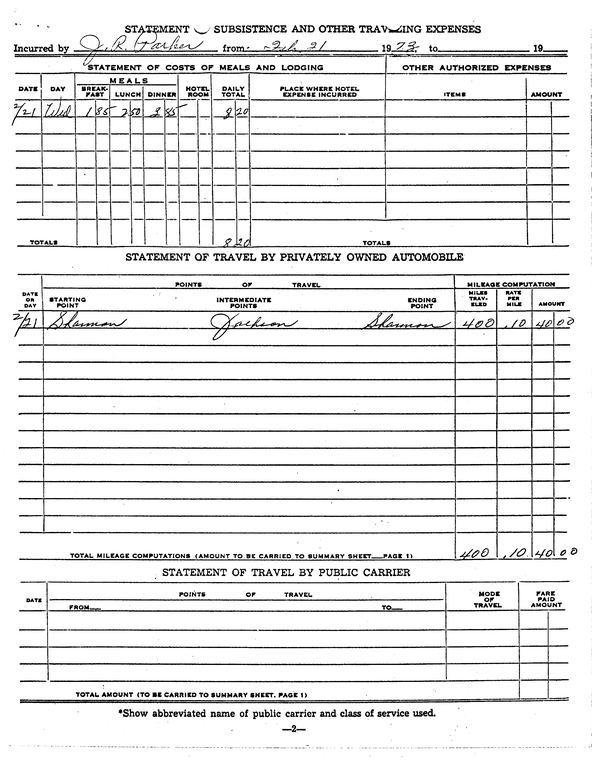 STATEMENT SUBSISTENCE AND OTHER TRAVELING EXPENSES
Incurred by J. R. Parker from Feb 21 1973 to 19
STATEMENT OF COSTS OF MEALS AND LODGING OTHER AUTHORIZED EXPENSES
DATE DAY MEALS BREAK-FAST LUNCH DINNER HOTEL ROOM DAILY TOTAL PLACE WHERE HOTEL EXPENSE INCURRED ITEMS AMOUNT
2/21 Wed 1 85 2 50 3 85 8 20
TOTALS 8 20 TOTALS
STATEMENT OF TRAVEL BY PRIVATELY OWNED AUTOMOBILE
POINTS OF TRAVEL MILEAGE COMPUTATION
DATE OR DAY STARTING POINT INTERMEDIATE POINTS ENDING POINT MILES TRAV-ELED RATE PER MILE AMOUNT
2/21 Shannon Jackson Shannon 400 .10 40 00
TOTAL MILEAGE COMPUTATIONS (AMOUNT TO BE CARRIED TO SUMMARY SHEET PAGE 1) 400 .10 40 00
STATEMENT OF TRAVEL BY PUBLIC CARRIER
DATE POINTS OF TRAVEL MODE OF TRAVEL FARE PAID AMOUNT
FROM TO
TOTAL AMOUNT (TO BE CARRIED TO SUMMARY SHEET, PAGE 1)
*Show abbreviated name of public carrier and class of service used.
—2—